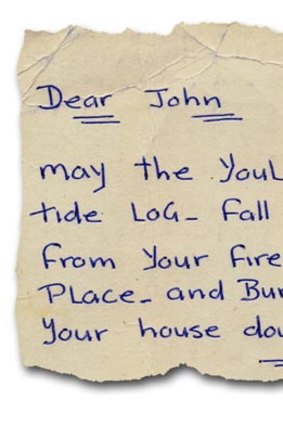 Dear John
may the YouL
tide LOG- fall
from Your fire
PLace- and Bur
Your house dow